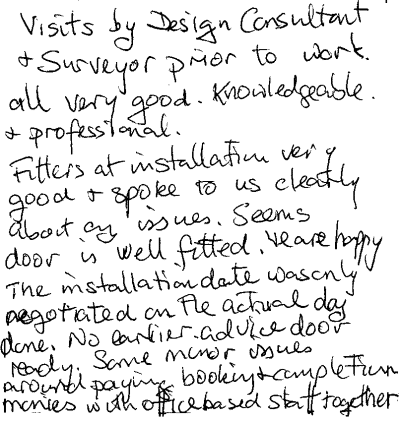 Visits by Design Consultant
+ Surveyor prior to work.
all very good. Knowledgeable.
+ professional.
Fitters at installation very
good + spoke to us clearly
about any issues. Seems
door is well fitted. We are happy
The installation date was only
negotiated on the actual day
done. No earlier advice door
ready. Some minor issues
around paying booking + completion
monies with office based staff together